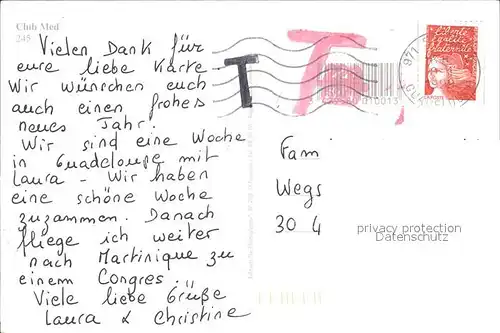 Club Med
245
Vielen Dank für
eure liebe Karte
Wir wünschen euch
auch einen frohes
neues Jahr.
Wir sind eine Woche
in Guadeloupe mit
Laura - Wir haben
eine schöne Woche
zuzammen. Danach
fliege ich weiter
nach Martinique zu
einem Congres.
Viele liebe Grüße
Laura & Christine
T
T
Liberté
égalité
fraternité
971
Fam
Wegs
30 4
privacy protection
Datenschutz